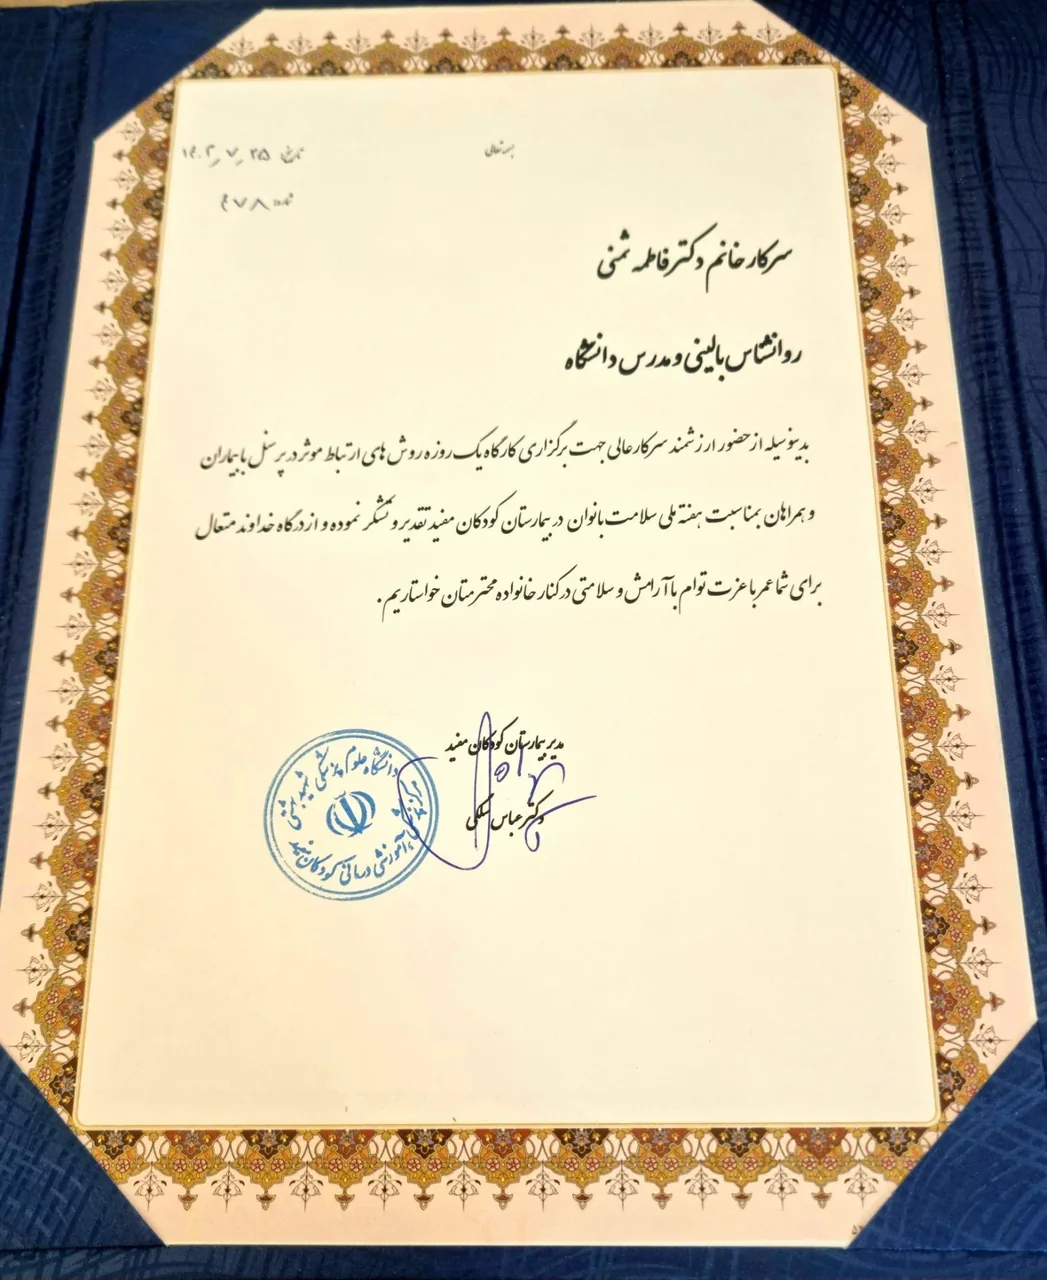 بسمه تعالی
تاریخ ۱۴۰۲٫۷٫۲۵
شماره ۴۷۸
سرکار خانم دکتر فاطمه ثمنی
روانشناس بالینی و مدرس دانشگاه
بدینوسیله از حضور ارزشمند سرکار عالی جهت برگزاری کارگاه یک روزه روش های ارتباط موثر در پرسنل با بیماران
و همراهان بمناسبت هفته ملی سلامت بانوان در بیمارستان کودکان مفید تقدیر و تشکر نموده و از درگاه خداوند متعال
برای شما عمر با عزت توام با آرامش و سلامتی در کنار خانواده محترمتان خواستاریم.
مدیر بیمارستان کودکان مفید
دکتر عباس
دانشگاه علوم پزشکی شهید بهشتی
آموزشی درمانی کودکان مفید